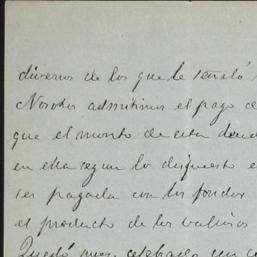 diversos de los que le señaló
Nosotros admitimos el pago de
que el monto de esta deuda
en ella segun lo dispuesto e
ser pagada con los fondos
el producto de los
Quedó pues celebrado un